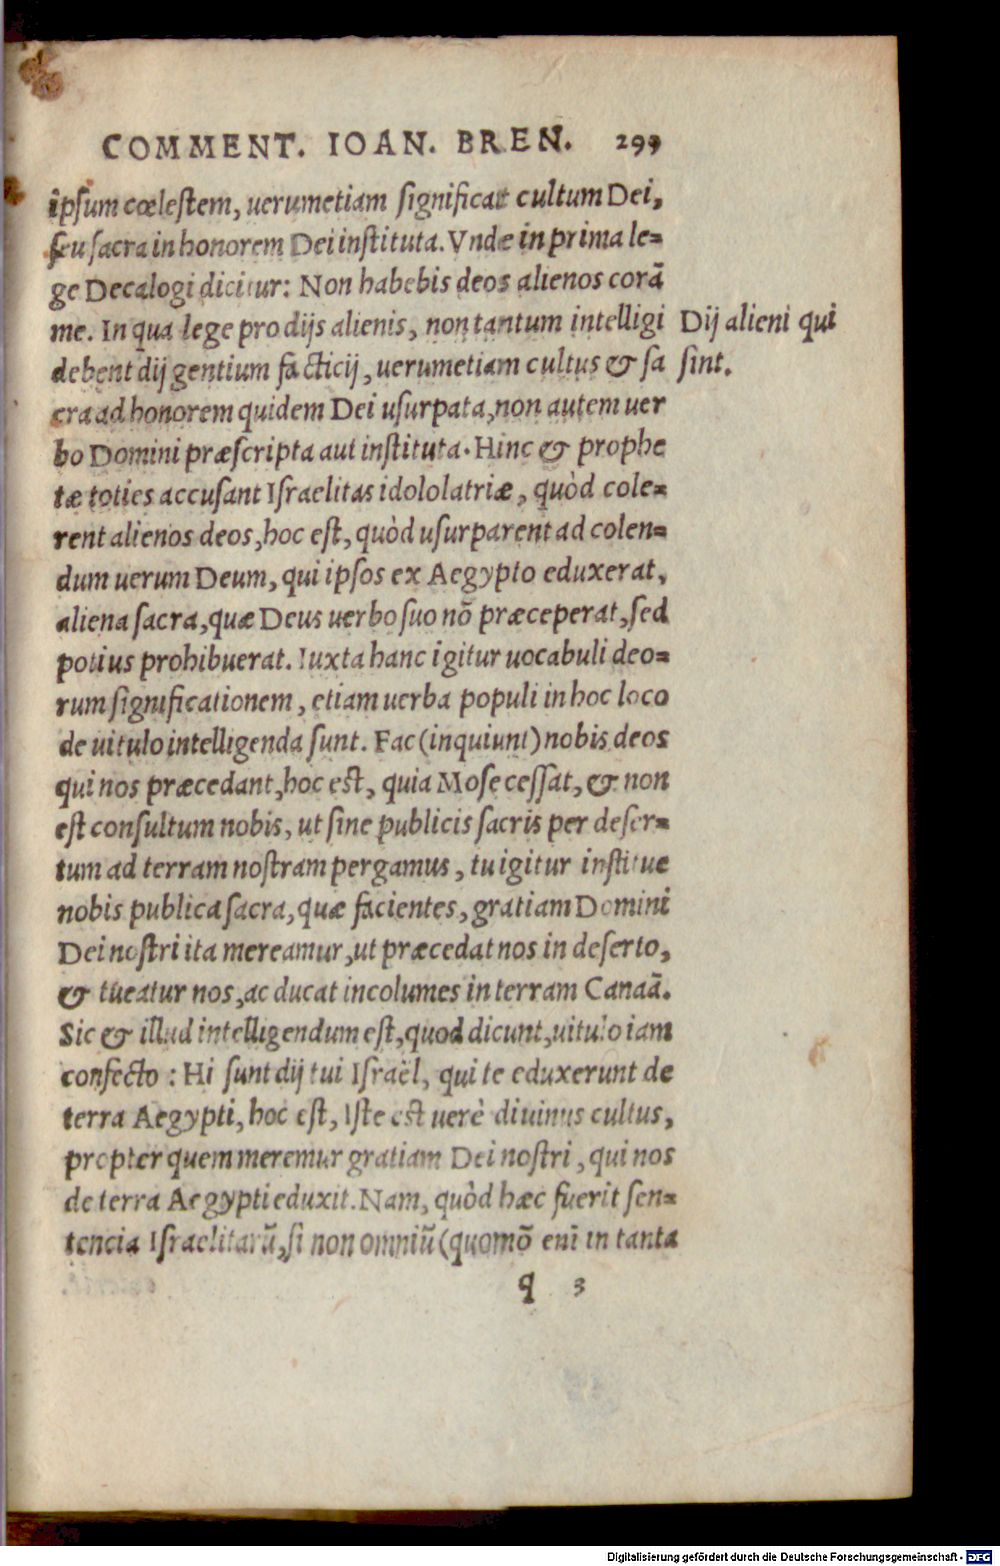 COMMENT. IOAN. BREN. 299
ipsum cœlestem, uerumetiam significat cultum Dei,
seu sacra in honorem Dei instituta. Vnde in prima le=
ge Decalogi dicitur: Non habebis deos alienos corã
me. In qua lege pro dijs alienis, non tantum intelligi
debent dij gentium facticij, uerumetiam cultus & sa
cra ad honorem quidem Dei usurpata, non autem uer
bo Domini præscripta aut instituta. Hinc & prophe
tæ toties accusant Israelitas idololatriæ, quòd cole=
rent alienos deos, hoc est, quòd usurparent ad colen=
dum uerum Deum, qui ipsos ex Aegypto eduxerat,
aliena sacra, quæ Deus uerbo suo nõ præceperat, sed
potius prohibuerat. Iuxta hanc igitur uocabuli deo=
rum significationem, etiam uerba populi in hoc loco
de uitulo intelligenda sunt. Fac (inquiunt) nobis deos
qui nos præcedant, hoc est, quia Mose cessat, & non
est consultum nobis, ut sine publicis sacris per deser=
tum ad terram nostram pergamus, tu igitur institue
nobis publica sacra, quæ facientes, gratiam Domini
Dei nostri ita mereamur, ut præcedat nos in deserto,
& tueatur nos, ac ducat incolumes in terram Canaã.
Sic & illud intelligendum est, quod dicunt, uitulo iam
confecto : Hi sunt dij tui Israël, qui te eduxerunt de
terra Aegypti, hoc est, Iste est uerè diuinus cultus,
propter quem meremur gratiam Dei nostri, qui nos
de terra Aegypti eduxit. Nam, quòd hæc fuerit sen=
tencia Israelitarũ, si non omniũ (quomõ enĩ in tanta
q 3
Dij alieni qui
sint.
Digitalisierung gefördert durch die Deutsche Forschungsgemeinschaft - DFG